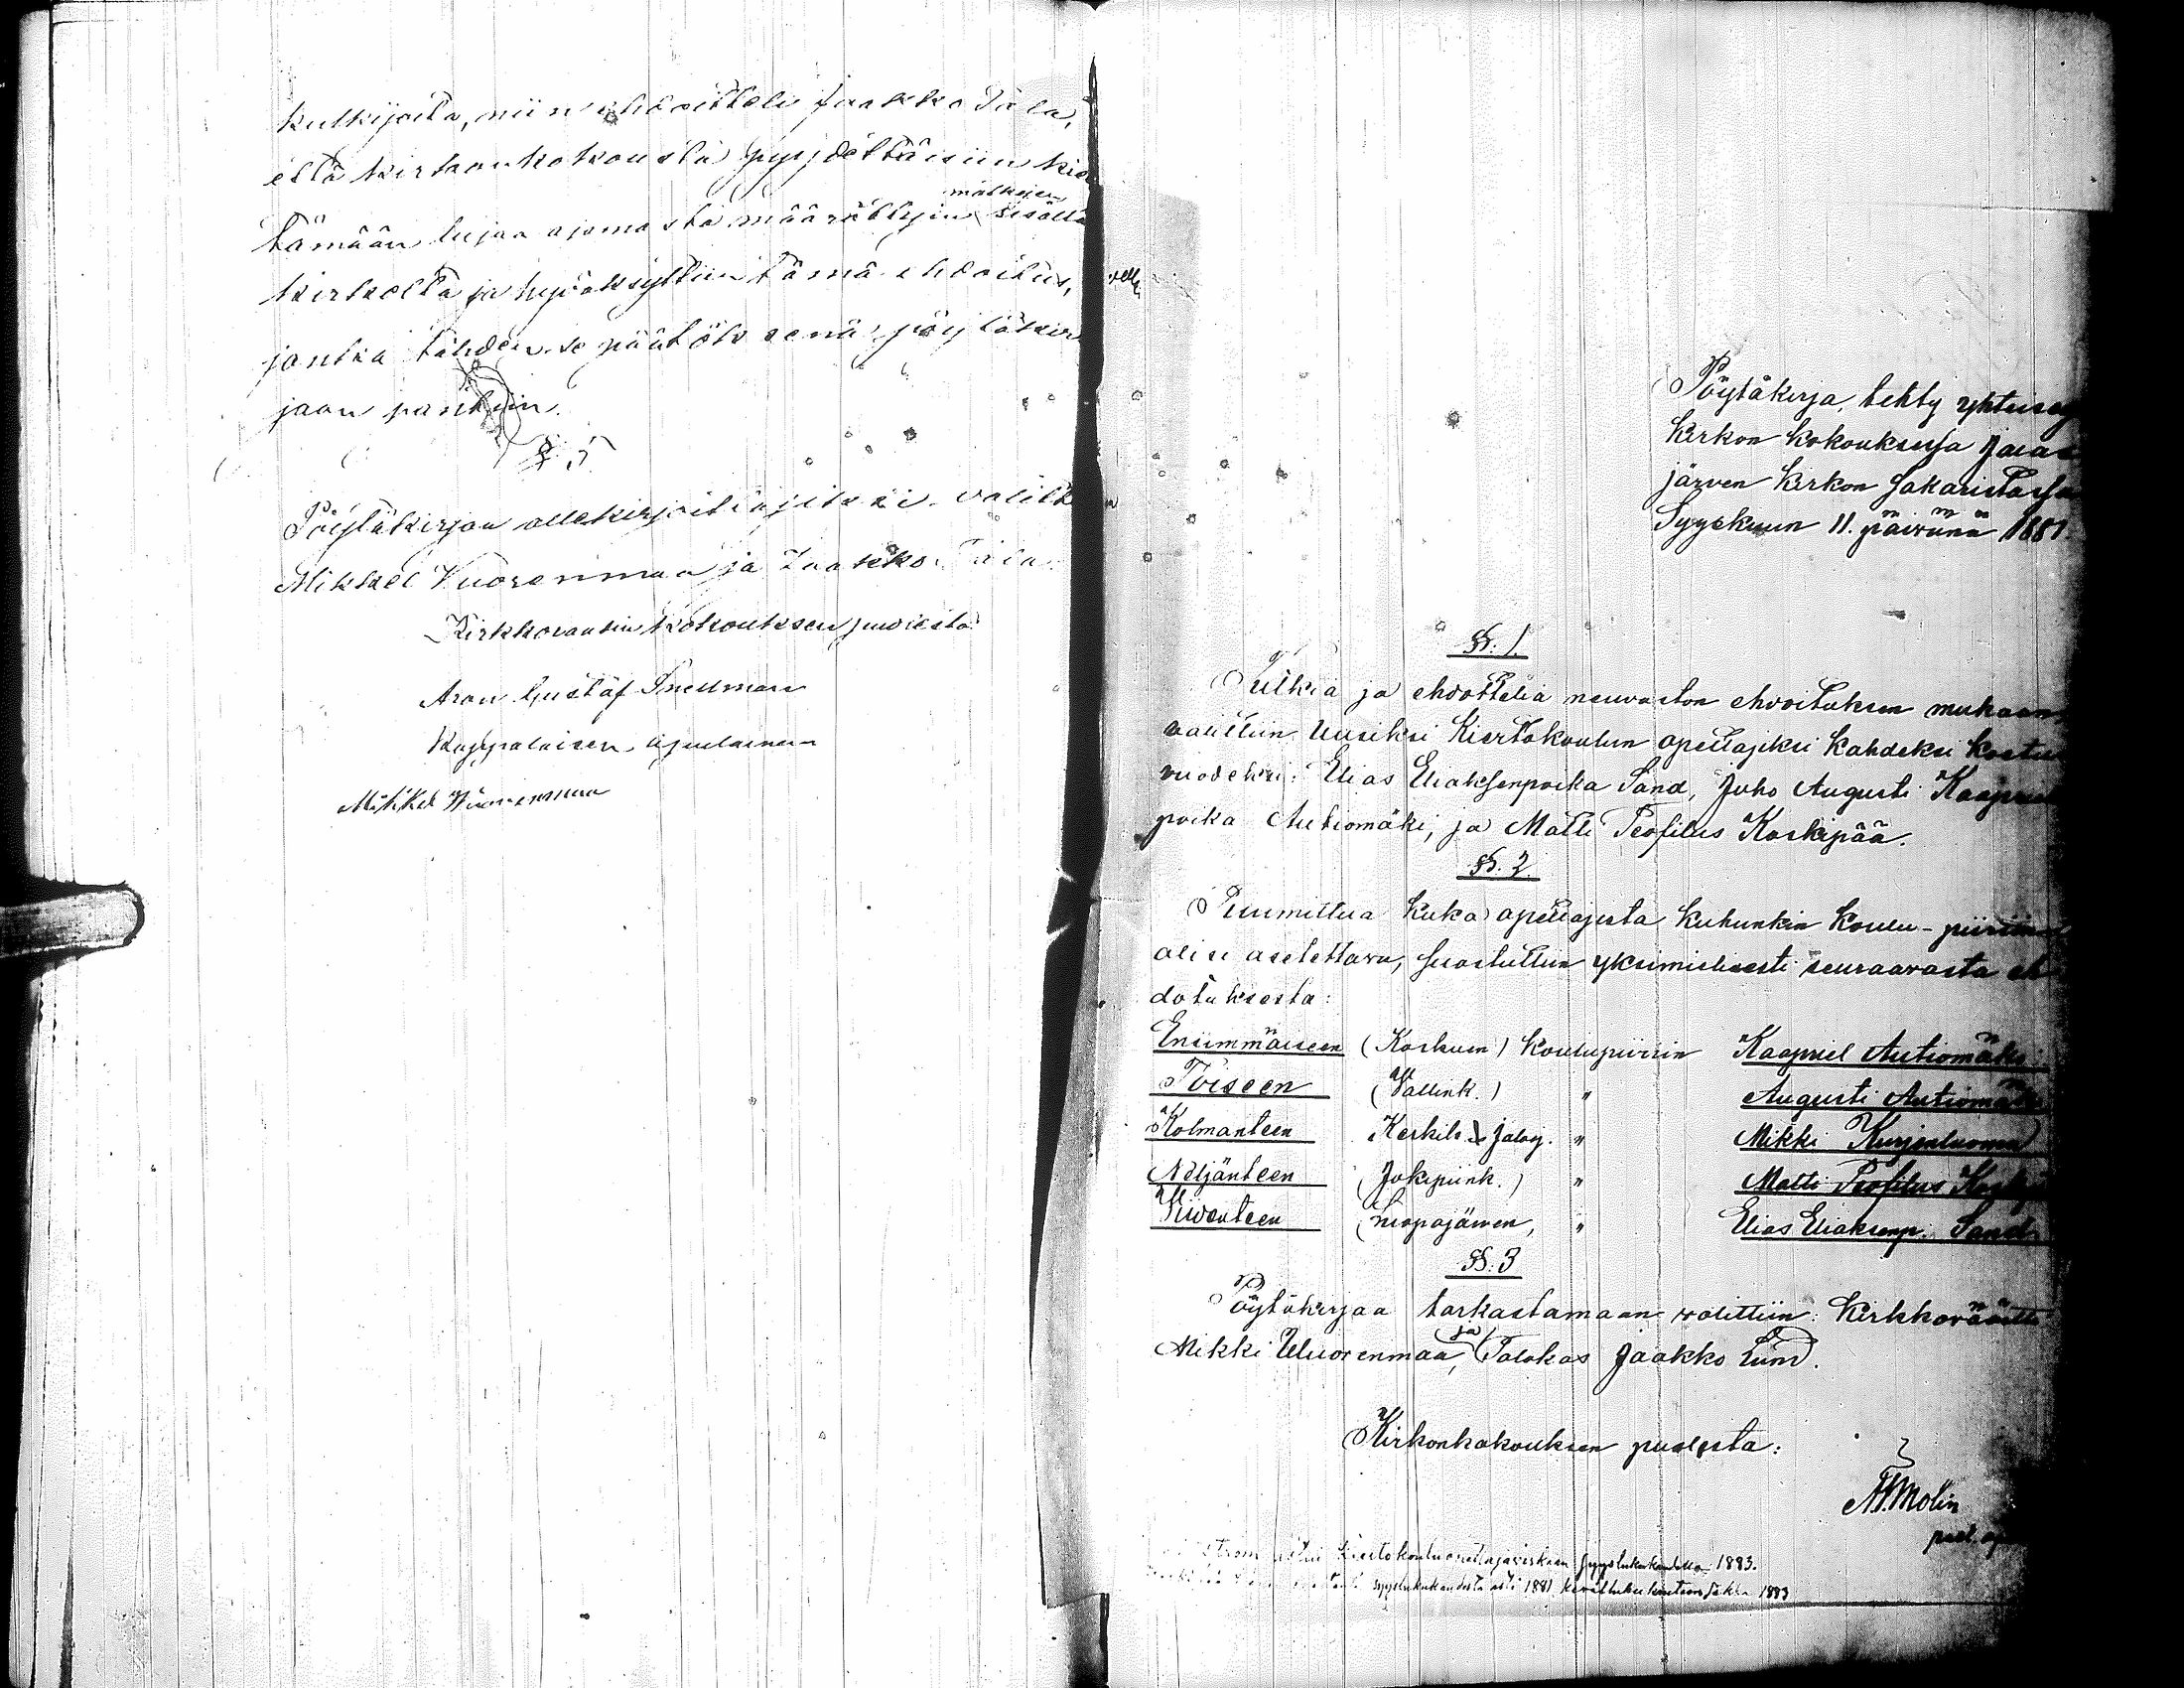 kulkijoita, niin ehdoitteli Jaakko Tala,
että kirkonkokousta pyydettäisiin kiel
tämään lujaa ajamasta määrättyin matkojen sisällä
kirkolta ja hyväksyttiin tämä ehdoitus,
jonka tähden se päätöksenä pöytäkir
jaan pantiin.
§ 5
Pöytäkirjan allekirjoittajiksi valitt
Mikkel Vuorenmaa ja Jaakko Tala
Kirkkoraadin kokouksen puolesta
Aron Gustaf Snellman
Kappalaisen apulainen
Mikkel Vuorenmaa
Pöytäkirja, tehty yhteises
Kirkon kokouksessa Jalas
järven Kirkon Sakaristossa
Syyskuun 11. päivänä 1881.
§§. 1.
Tutkia ja ehdottelia neuvoston ehdoituksen mukaan
valittiin uusiksi Kiertokoulun opettajiksi kahdeksi koetus
vuodeksi: Elias Eliaksenpoika Sand, Juho Augusti Kaaprielin
poika Autiomäki, ja Matti Teofilus Koskipää.
§§. 2.
Tuumittua kuka opettajista kuhunkin Koulu-piiriin
olisi asetettava, suostuttiin yksimielisesti seuraavasta eh
dotuksesta:
Ensimmäiseen (Koskuen) Koulupiiriin Kaapriel Autiomäki
Toiseen (Vallink.) " Augusti Autiomäki
Kolmanteen Keskik. Jalasj. " Mikki Kurjenluoma
Neljänteen (Jokipiink.) " Matti Teofilus Koskip
Viidenteen (Luopajärven, " Elias Eliaksenp. Sand.
§§. 3
Pöytäkirjaa tarkastamaan valittiin: Kirkkoväärtti
Mikki Wuorenmaa, ja Talokas Jaakko Lund.
Kirkonkokouksen puolesta:
A. F. Molin
past. ap
Kiertokoulunopettajavirkaan syyslukukaudella 1883.
syyslukukaudesta asti 1881 kevätlukukauteen 1883